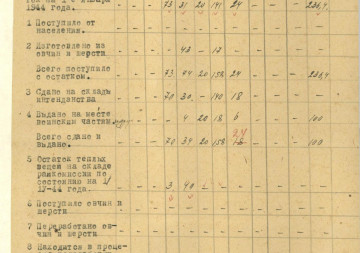 1944 года. - - - 73 31 20 191 24 - - - 236,4
1 Поступило от
населения. - - - - - - - - - - - -
2 Изготовлено из
овчин и шерсти - - - - 43 - 17 - - - - -
Всего поступило
с остатком. - - - 73 20 24 - - - 236,4
3 Сдано на склады
интенданства - - - 70 30 - 140 18 - - - -
4 Выдано на месте
воинским частям. - - - - 4 20 18 6 - - - 100
Всего сдано и
выдано. - - - 70 34 20 158 24 - - - 100
5 Остаток теплых
вещей на складе
райкомиссии по
состоянию на 1/
IV-44 года - - - 3 40 - - - - - -
6 Поступило овчин и
шерсти - - - - - - - - - - -
7 Переработано ов-
чин и шерсти - - - - - - - - - - -
8 Находится в проце-